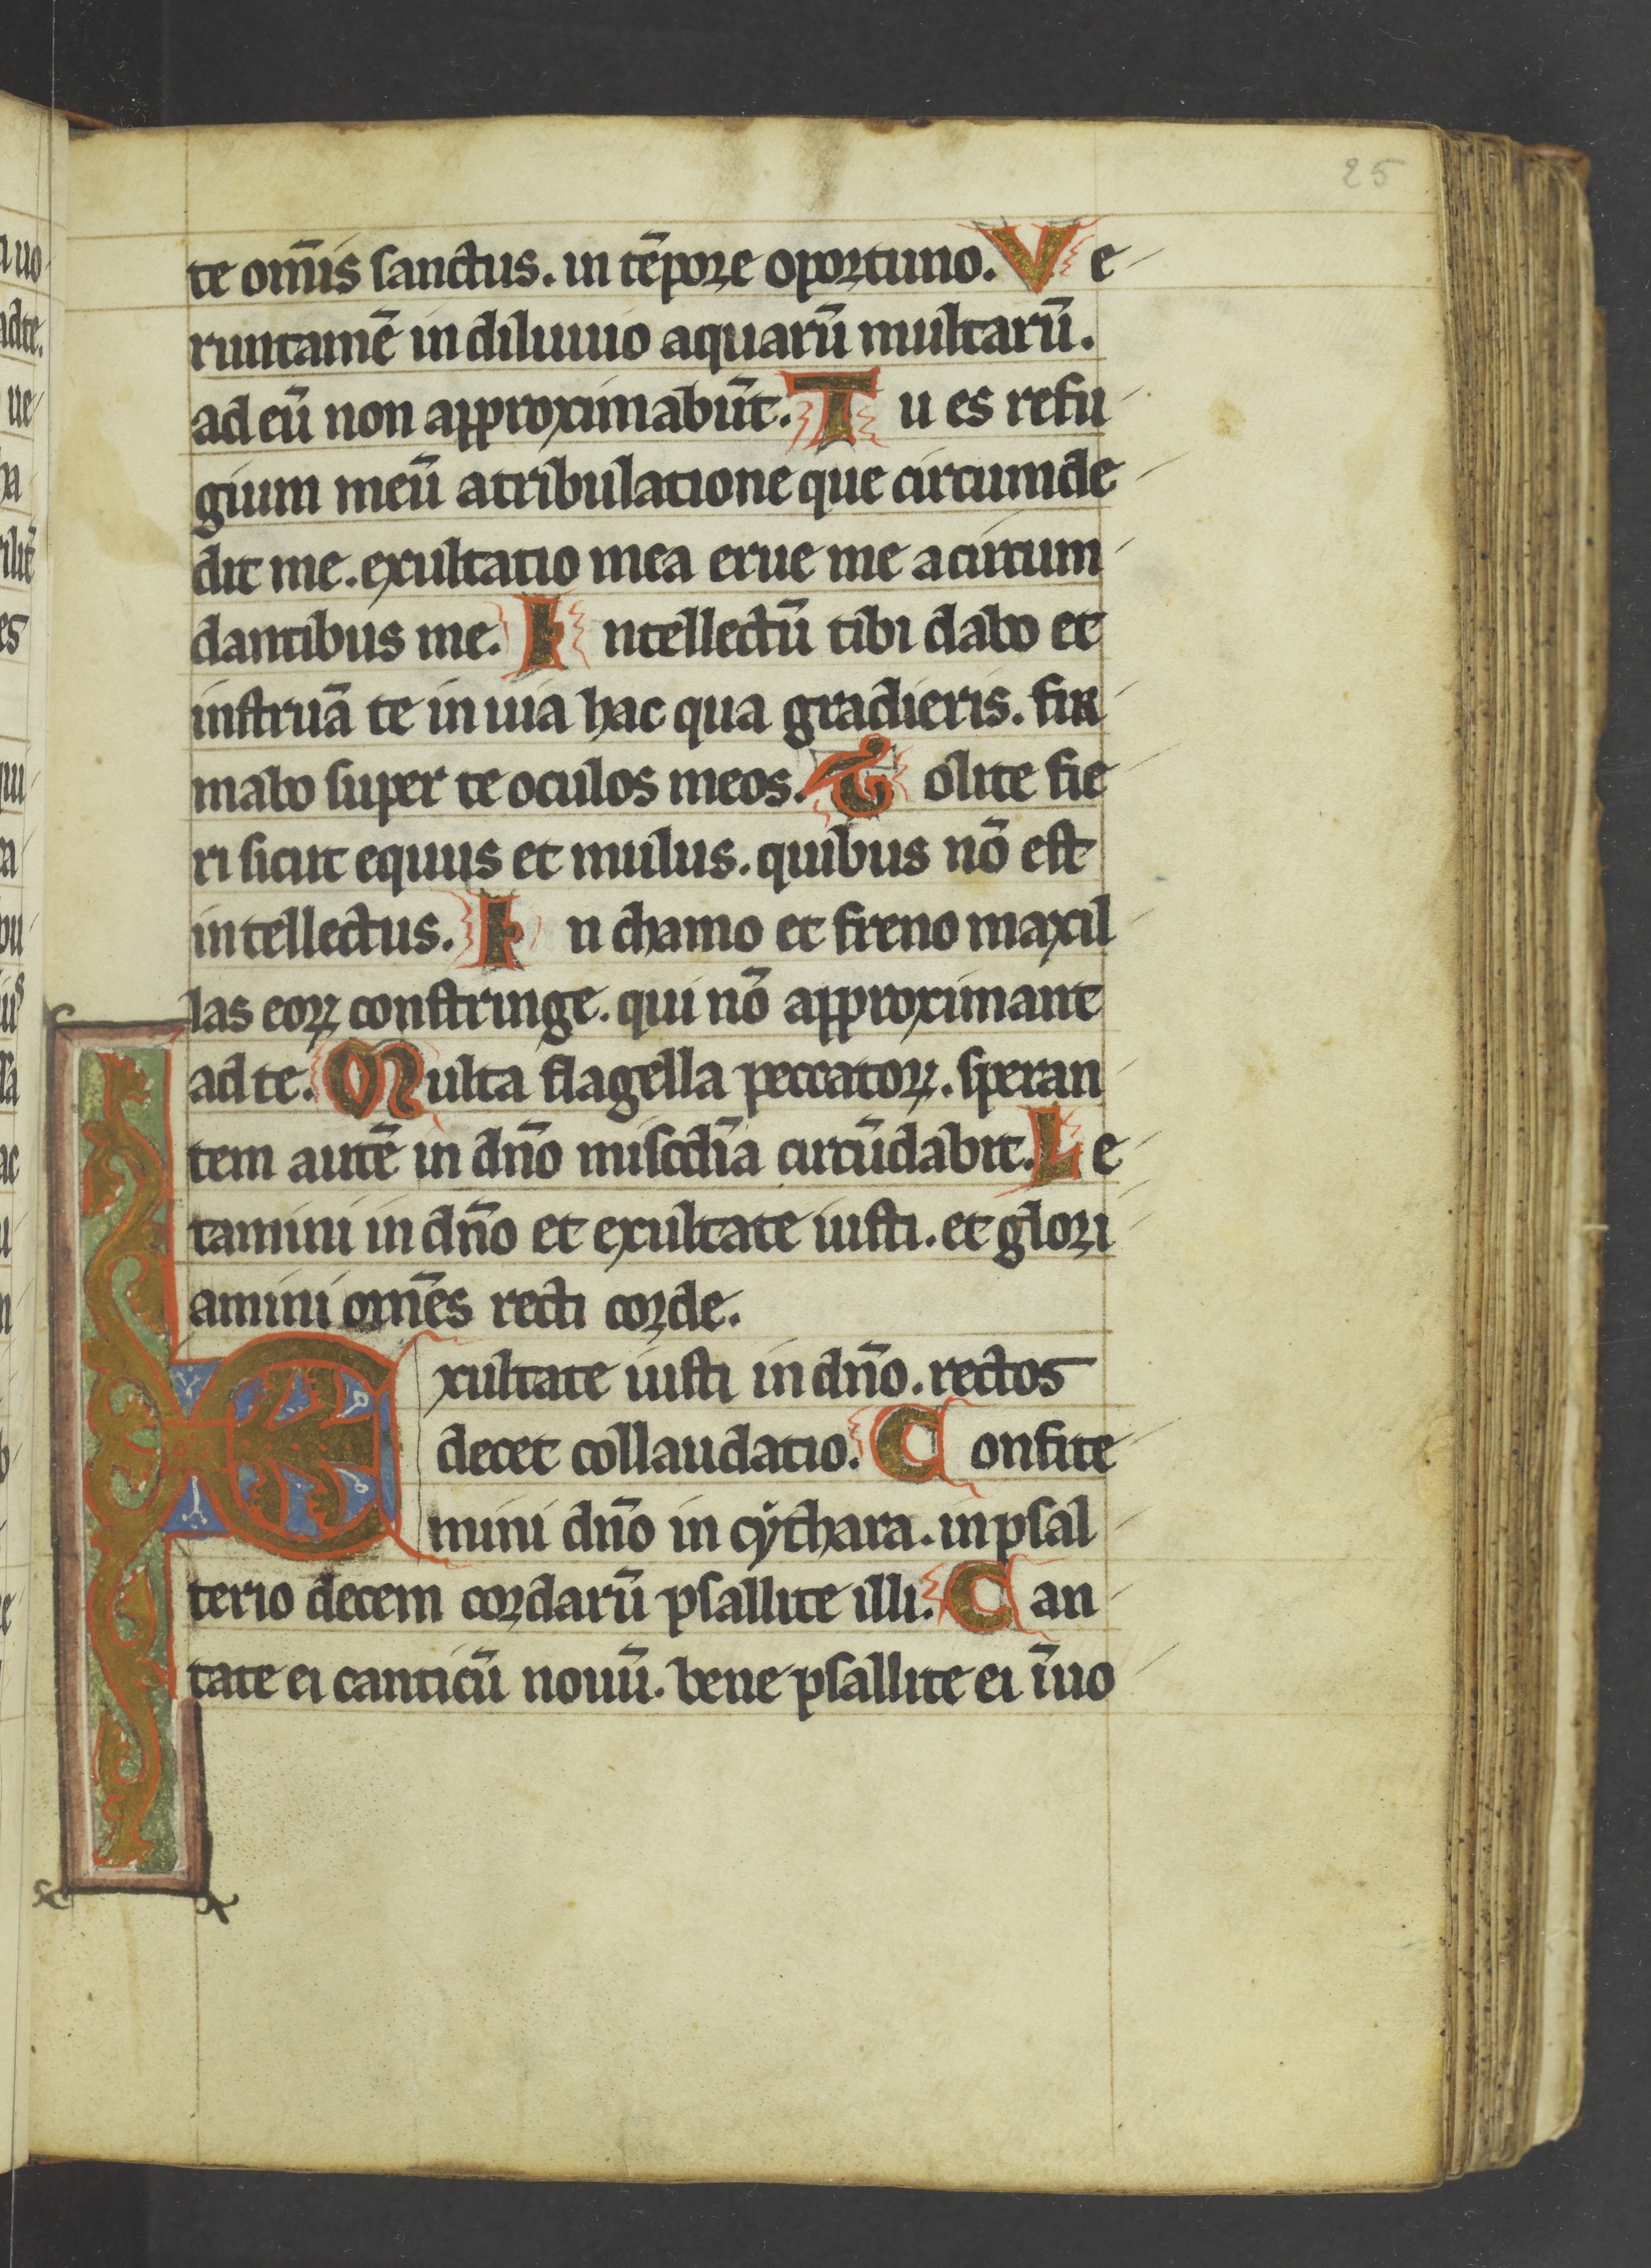 25
te om̄is sanctus. in tēpore oportuno. Ve
runtamē in diluuuio aquarū multarū.
ad eū non approximabūt. Tu es refu
gium meū a tribulatione que circumde
dit me. exultatio mea erue me a circum
dantibus me. Intellectū tibi dabo et
instruā te in uia hac qua gradieris. fir
mabo super te oculos meos. Nolite fie
ri sicut equus et mulus. quibus nō est
intellectus. In chamo et freno maxil
las eoꝝ constringe. qui nō approximant
ad te. Multa flagella peccatoꝝ. speran
tem autē in dn̄o miscd̄ia circūdabit. Le
tamini in dn̄o et exultate iusti. et glori
amini om̄es recti corde.
Exultate iusti in dn̄o. rectos
decet collaudatio. Confite
mini dn̄o in cẏthara. in psal
terio decem cordarū psallite illi. Can
tate ei canticū nouū. bene psallite ei ī uo